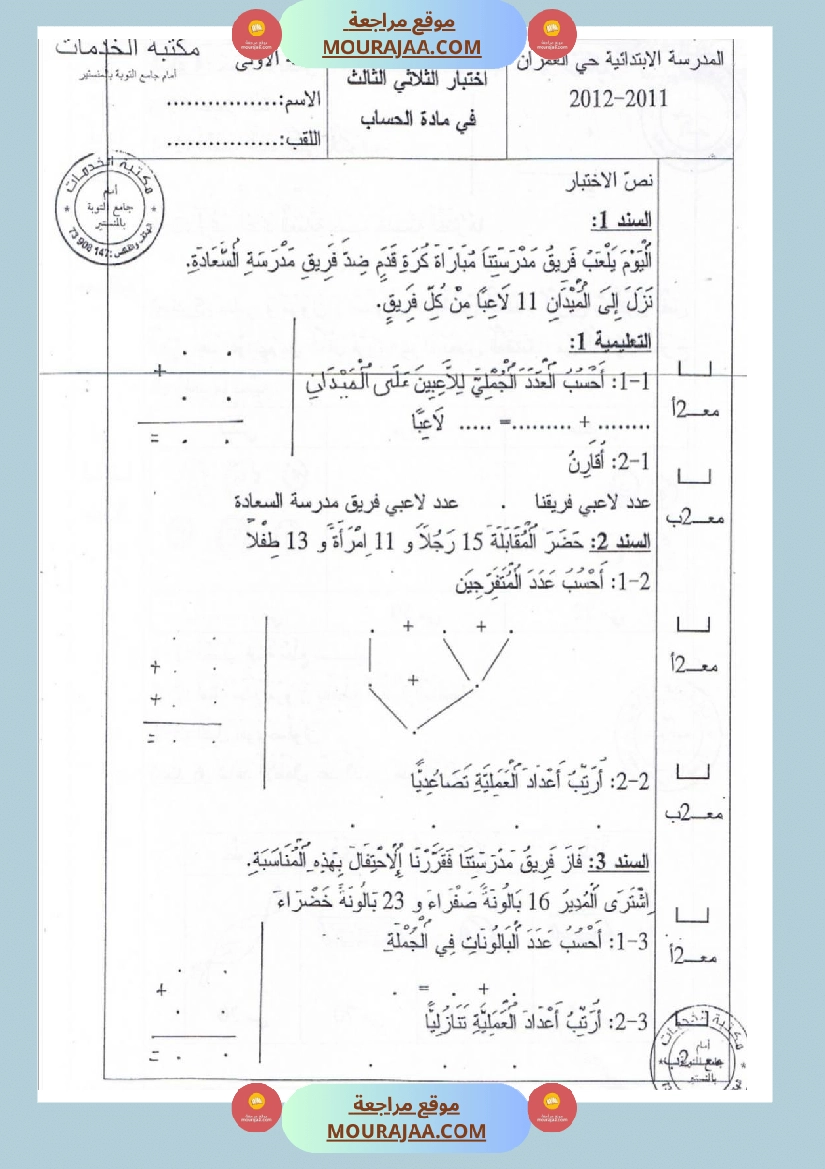 موقع مراجعة
MOURAJAA.COM
مكتبة الخدمات
أمام جامع التوبة بالمنستير
المدرسة الابتدائية حي العمران
2012-2011
اختبار الثلاثي الثالث
في مادة الحساب
الأولى
الاسم:................
اللقب:................
مكتبة الخدمات
أمام
جامع التوبة
بالمنستير
نصّ الاختبار
السند 1:
اَلْيَوْمَ يَلْعَبُ فَرِيقُ مَدْرَسَتِنَا مُبَارَاةَ كُرَةِ قَدَمٍ ضِدَّ فَرِيقِ مَدْرَسَةِ السَّعَادَةِ.
نَزَلَ إِلَى الْمَيْدَانِ 11 لَاعِبًا مِنْ كُلِّ فَرِيقٍ.
التعليمية 1:
1-1: أَحْسُبُ الْعَدَدَ الْجُمْلِيَّ لِلاَّعِبِينَ عَلَى الْمَيْدَانِ
معـ2أ
........ + .........= ..... لَاعِبًا
. .
+
. .
= . .
1-2: أُقَارِنُ
معـ2ب
عدد لاعبي فريقنا . عدد لاعبي فريق مدرسة السعادة
السند 2: حَضَرَ الْمُقَابَلَةَ 15 رَجُلًا و 11 اِمْرَأَةً و 13 طِفْلًا
2-1: أَحْسُبُ عَدَدَ الْمُتَفَرِّجِينَ
معـ2أ
. + . + .
. + .
.
. .
+ . .
+ . .
= . .
2-2: أُرَتِّبُ أَعْدَادَ الْعَمَلِيَّةِ تَصَاعُدِيًّا
معـ2ب
. . . .
السند 3: فَازَ فَرِيقُ مَدْرَسَتِنَا فَقَرَّرْنَا اَلِاحْتِفَالَ بِهَذِهِ الْمُنَاسَبَةِ.
اِشْتَرَى الْمُدِيرُ 16 بَالُونَةً صَفْرَاءَ و 23 بَالُونَةً خَضْرَاءَ
3-1: أَحْسُبُ عَدَدَ الْبَالُونَاتِ فِي الْجُمْلَةِ
معـ2أ
. + . = .
. .
+
. .
= . .
3-2: أُرَتِّبُ أَعْدَادَ الْعَمَلِيَّةِ تَنَازُلِيًّا
. . .
مكتبة الخدمات
أمام
بالمنستير
موقع مراجعة
MOURAJAA.COM